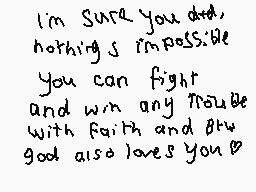 i'm sure you did,
nothing s impossible
you can fight
and win any trouble
with faith and btw
god also loves you ♡